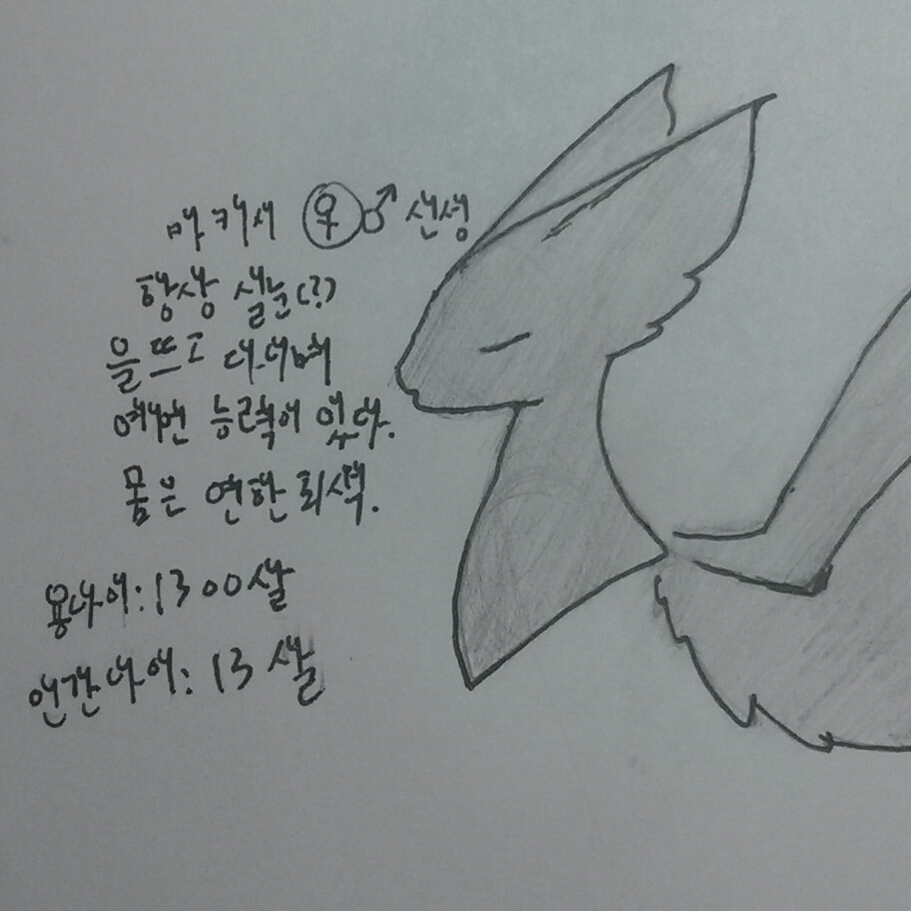 마키시 ♀♂ 선생
항상 실눈(?)
을 뜨고 다니며
예언 능력이 있다.
몸은 연한 회색.
용나이: 1300살
인간나이: 13살